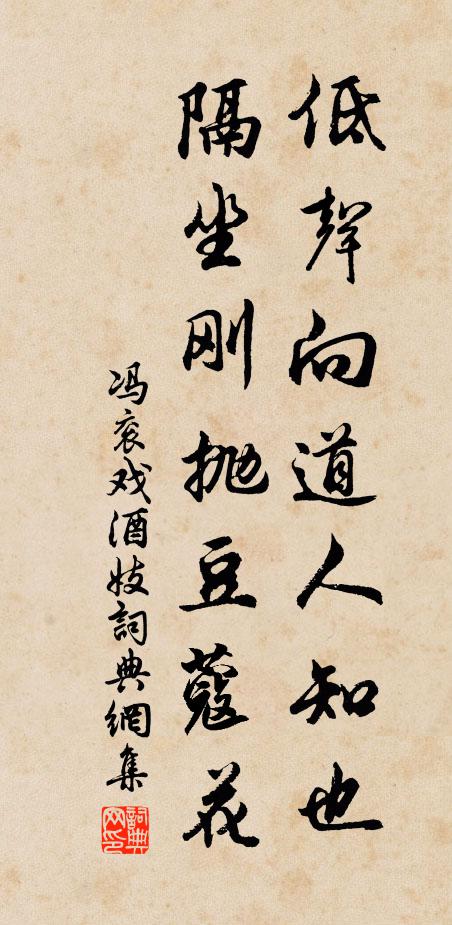 低聲向道人知也
隔坐刚抛豆蔻花
冯衮戏酒妓詞典網集
詞典
网印